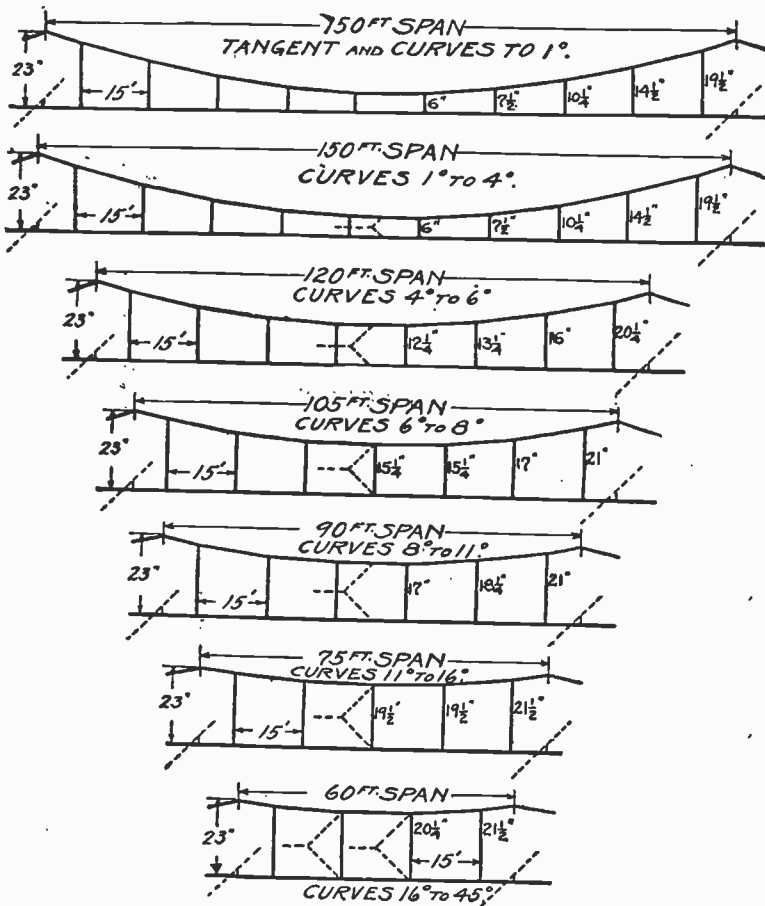 150 FT. SPAN
TANGENT AND CURVES TO 1°.
23"
15'
6"
7½"
10¼"
14½"
19½"
150 FT. SPAN
CURVES 1° TO 4°.
23"
15'
6"
7½"
10¼"
14½"
19½"
120 FT. SPAN
CURVES 4° TO 6°
23"
15'
12¼"
13¼"
16"
20¼"
105 FT. SPAN
CURVES 6° TO 8°
23"
15'
15¼"
15¼"
17"
21"
90 FT. SPAN
CURVES 8° TO 11°.
23"
15'
17"
18¼"
21"
75 FT. SPAN
CURVES 11° TO 16°
23"
15'
19½"
19½"
21½"
60 FT. SPAN
23"
20¼"
21½"
15'
CURVES 16° TO 45°